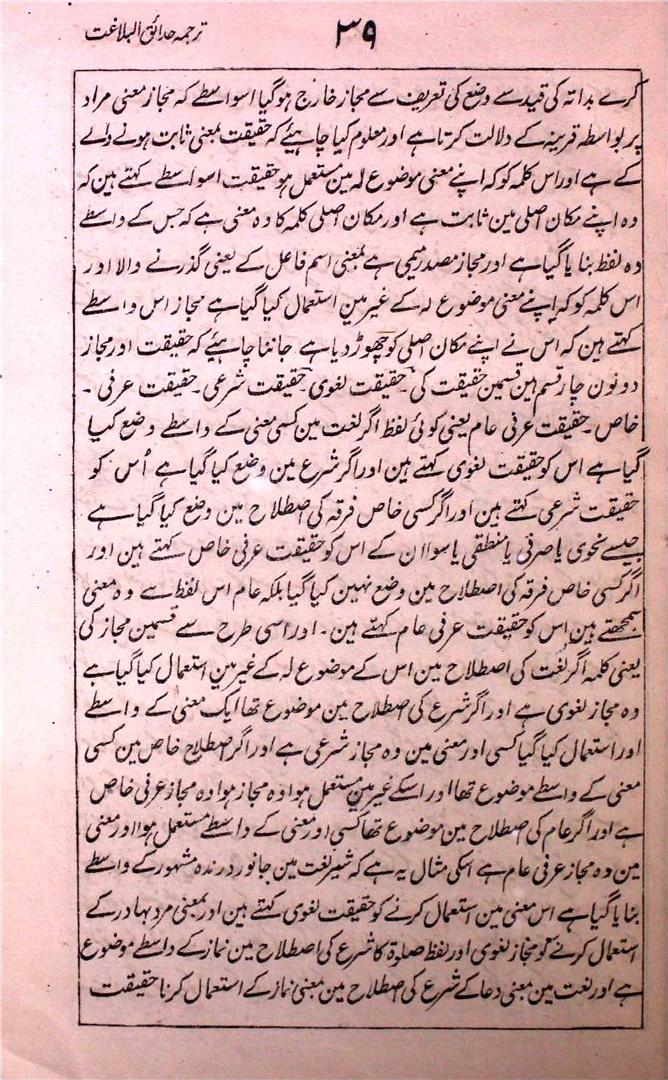 ترجمہ حدائق البلاغت
۳۹
کرے بذاتہ کی قید سے وضع کی تعریف سے مجاز خارج ہو گیا اسواسطے کہ مجاز معنی مراد
پر بواسطہ قرینہ کے دلالت کرتا ہے اور معلوم کیا چاہیئے کہ حقیقت بمعنی ثابت ہونے والے
کے ہے اور اس کلمہ کو کہ اپنے معنی موضوع لہ مین مستعمل ہو حقیقت اسواسطے کہتے ہین کہ
وہ اپنے مکان اصلی مین ثابت ہے اور مکان اصلی کلمہ کا وہ معنی ہے کہ جس کے واسطے
وہ لفظ بنایا گیا ہے اور مجاز مصدر میمی ہے بمعنی اسم فاعل کے یعنی گذرنے والا اور
اس کلمہ کو کہ اپنے معنی موضوع لہ کے غیر مین استعمال کیا گیا ہے مجاز اس واسطے
کہتے ہین کہ اس نے اپنے مکان اصلی کو چھوڑ دیا ہے۔ جاننا چاہیئے کہ حقیقت اور مجاز
دونون چار قسم ہین قسمین حقیقت کی۔ حقیقت لغوی۔ حقیقت شرعی۔ حقیقت عرفی۔
خاص۔ حقیقت عرفی عام یعنی کوئی لفظ اگر لغت مین کسی معنی کے واسطے وضع کیا
گیا ہے اس کو حقیقت لغوی کہتے ہین اور اگر شرع مین وضع کیا گیا ہے اُس کو
حقیقت شرعی کہتے ہین اور اگر کسی خاص فرقہ کی اصطلاح مین وضع کیا گیا ہے
جیسے نحوی یا صرفی یا منطقی یا سوا ان کے اس کو حقیقت عرفی خاص کہتے ہین اور
اگر کسی خاص فرقہ کی اصطلاح مین وضع نہین کیا گیا بلکہ عام اس لفظ سے وہ معنی
سمجھتے ہین اس کو حقیقت عرفی عام کہتے ہین۔ اور اسی طرح سے قسمین مجاز کی
یعنی کلمہ اگر لغت کی اصطلاح مین اس کے موضوع لہ کے غیر مین استعمال کیا گیا ہے
وہ مجاز لغوی ہے اور اگر شرع کی اصطلاح مین موضوع تھا ایک معنی کے واسطے
اور استعمال کیا گیا کسی اور معنی مین وہ مجاز شرعی ہے اور اگر اصطلاح خاص مین کسی
معنی کے واسطے موضوع تھا اور اسکے غیر مین مستعمل ہوا وہ مجاز ہوا وہ مجاز عرفی خاص
ہے اور اگر عام کی اصطلاح مین موضوع تھا کسی اور معنی کے واسطے مستعمل ہوا اور معنی
مین وہ مجاز عرفی عام ہے اسکی مثال یہ ہے کہ شیر لغت مین جانور درندہ مشہور کے واسطے
بنایا گیا ہے اس معنی مین استعمال کرنے کو حقیقت لغوی کہتے ہین اور بمعنی مرد بہادر کے
استعمال کرنے کو مجاز لغوی اور لفظ صلوۃ کا شرع کی اصطلاح مین نماز کے واسطے موضوع
ہے اور لغت مین بمعنی دعا کے شرع کی اصطلاح مین بمعنی نماز کے استعمال کرنا حقیقت